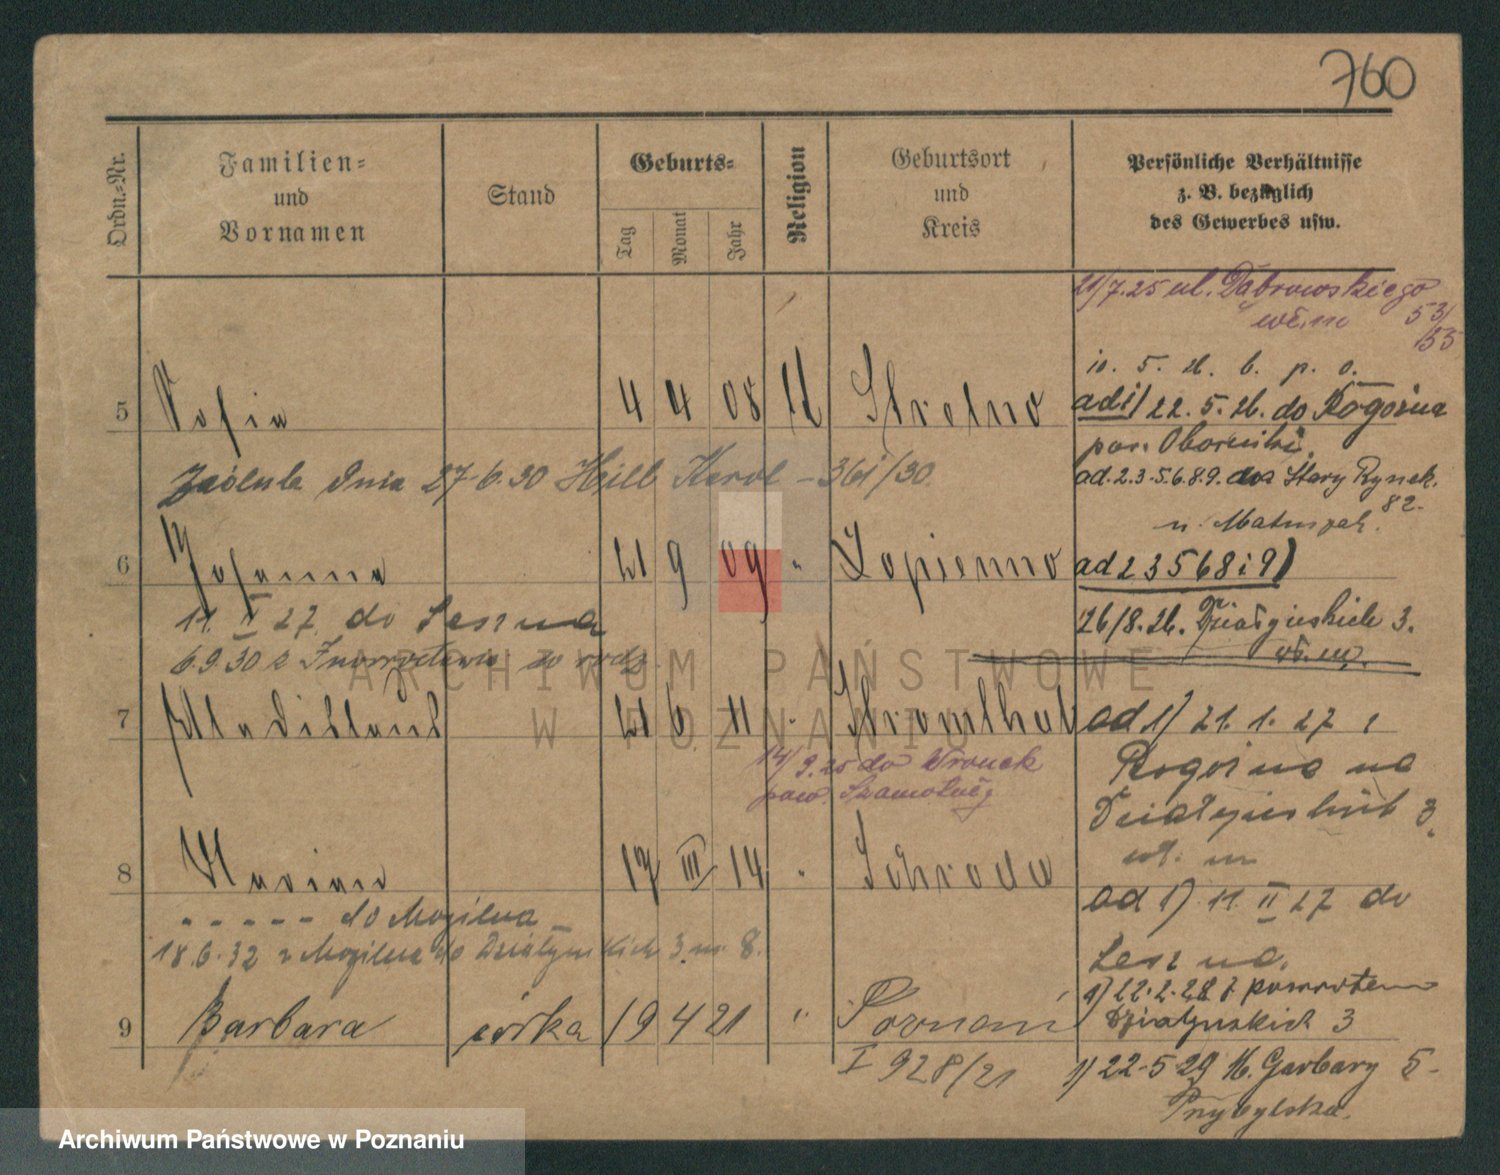 760
Ordn.-Nr.
Familien-
und
Vornamen
Stand
Geburts-
Tag
Monat
Jahr
Religion
Geburtsort
und
Kreis
Persönliche Verhältnisse
z. B. bezüglich
des Gewerbes usw.
21/7.25 ul. Dąbrowskiego
53/
55
5 4 4 08 Strelno
ad 1) 22. 5. 26. do Rogoźna
dnia 27.6.30 Karol - 361/30.
ad. 2.3.5.6.8.9. Stary Rynek.
82.
6 Johanna 21 9 09 " Lopienno
ad 2 3 5 6 8 i 9)
11. II 27. do Leszna
26/8.26. Działyńskich 3.
6.9.30 z Inowrocławia
7 Wladislaus 21 6 11 " Stromthal
ad 1) 21. 1. 27 z
14/9.25 do Wronek
pow. Szamotuły
Rogoźna na
Działyńskich 3
8 Mariana 17 III 14 "
ad 1) 11 II 27 do
Leszna.
- - - - - do Mogilna
18.6.32 z Mogilna do Działyńskich 3. m. 8.
1) 22.2.28 z powrotem
Działyńskich 3
9 Barbara córka 19 4 21 " Poznań
I 928/21
1) 22-5-29 W. Garbary 5-
Przybylska.
ARCHIWUM PAŃSTWOWE
W POZNANIU
Archiwum Państwowe w Poznaniu